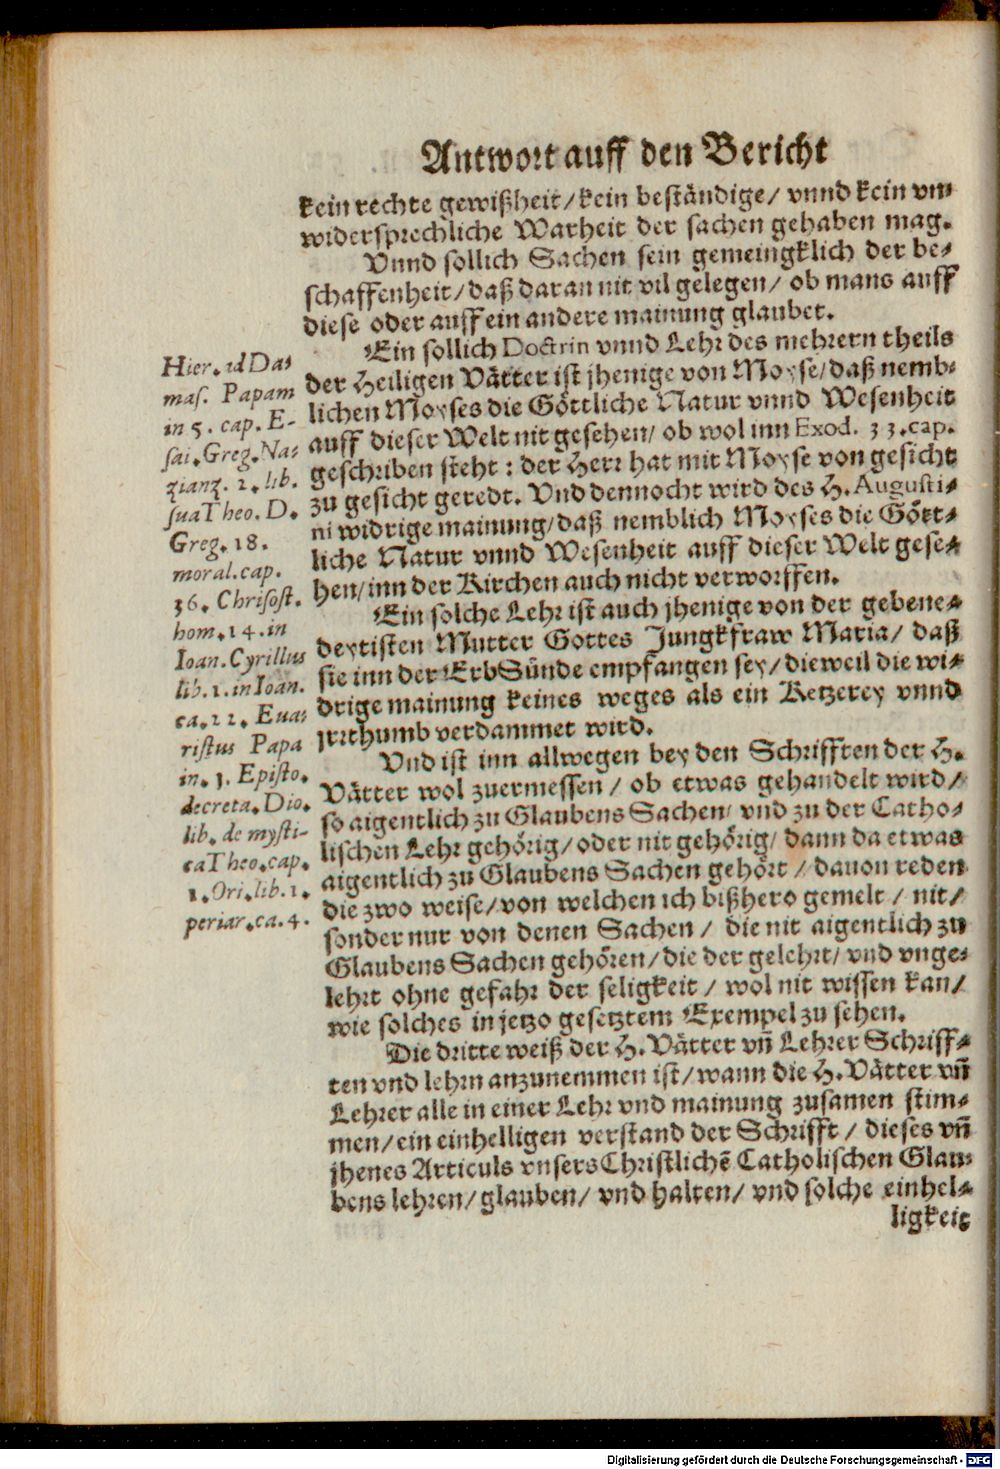 Antwort auff den Bericht
kein rechte gewißheit/ kein beständige/ vnnd kein vn⸗
widersprechliche Warheit der sachen gehaben mag.
Vnnd sollich Sachen sein gemeingklich der be⸗
schaffenheit/ daß daran nit vil gelegen/ ob mans auff
diese oder auff ein andere mainung glaubet.
Ein sollich Doctrin vnnd Lehr des mehrern theils
der Heiligen Vätter ist jhenige von Moyse/ daß nemb⸗
lichen Moyses die Göttliche Natur vnnd Wesenheit
auff dieser Welt nit gesehen/ ob wol inn Exod. 33. cap.
geschriben steht: der Herr hat mit Moyse von gesicht
zu gesicht geredt. Vnd dennocht wird des H. Augusti⸗
ni widrige mainung/ daß nemblich Moyses die Gött⸗
liche Natur vnnd Wesenheit auff dieser Welt gese⸗
hen/ inn der Kirchen auch nicht verworffen.
Ein solche Lehr ist auch jhenige von der gebene⸗
deytisten Mutter Gottes Jungkfraw Maria/ daß
sie inn der ErbSünde empfangen sey/ dieweil die wi⸗
drige mainung keines weges als ein Ketzerey vnnd
jrrthumb verdammet wird.
Vnd ist inn allwegen bey den Schrifften der H.
Vätter wol zuermessen/ ob etwas gehandelt wird/
so aigentlich zu Glaubens Sachen/ vnd zu der Catho⸗
lischen Lehr gehörig/ oder nit gehörig/ dann da etwas
aigentlich zu Glaubens Sachen gehört/ dauon reden
die zwo weise/ von welchen ich bißhero gemelt/ nit/
sonder nur von denen Sachen/ die nit aigentlich zu
Glaubens Sachen gehören/ die der gelehrt/ vnd vnge⸗
lehrt ohne gefahr der seligkeit/ wol nit wissen kan/
wie solches in jetzo gesetztem Exempel zu sehen.
Die dritte weiß der H. Vätter vñ Lehrer Schriff⸗
ten vnd lehrn anzunemmen ist/ wann die H. Vätter vñ
Lehrer alle in einer Lehr vnd mainung zusamen stim⸗
men/ ein einhelligen verstand der Schrifft/ dieses vñ
jhenes Articuls vnsers Christlichē Catholischen Glau⸗
bens lehren/ glauben/ vnd halten/ vnd solche einhel⸗
ligkeit
Hier. ad Da⸗
mas. Papam
in 5. cap. E-
sai. Greg. Na⸗
zianz. 2. lib.
sua Theo. D.
Greg. 18.
moral. cap.
36. Chrisost.
hom. 14. in
Ioan. Cyrillus
lib. 1. in Ioan.
ca. 22. Eua⸗
ristus Papa
in. 1. Episto.
decreta. Dio.
lib. de mysti-
ca Theo. cap.
1. Ori. lib. 1.
periar. ca. 4.
Digitalisierung gefördert durch die Deutsche Forschungsgemeinschaft - DFG